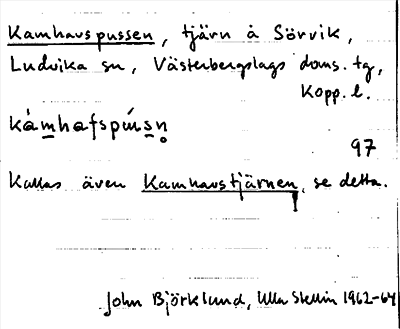 Kamhavspussen, tjärn å Sörvik,
Ludvika sn, Västerbergslags doms. tg,
Kopp. l.
kámhafspúsn̥
97
Kallas även Kamhavstjärnen, se detta.
John Björklund, Ulla Stellin 1962-64